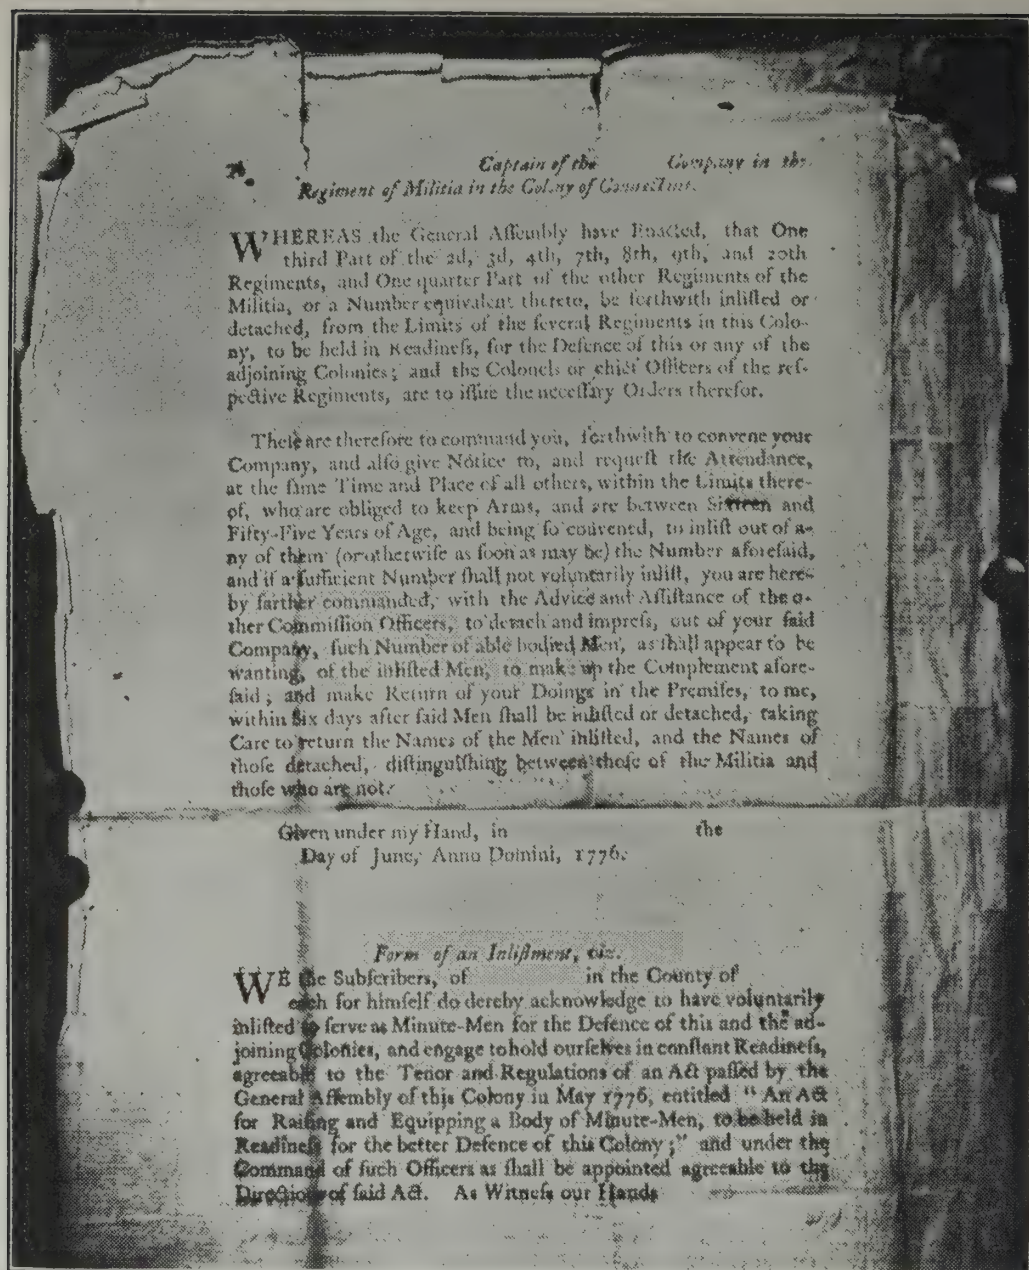 Captain of the Company in the
Regiment of Militia in the Colony of Connecticut.
WHEREAS the General Aſſembly have Enacted, that One
third Part of the 2d, 3d, 4th, 7th, 8th, 9th, and 20th
Regiments, and One quarter Part of the other Regiments of the
Militia, or a Number equivalent thereto, be forthwith inliſted or
detached, from the Limits of the ſeveral Regiments in this Colo-
ny, to be held in Readineſs, for the Defence of this or any of the
adjoining Colonies; and the Colonels or chief Officers of the reſ-
pective Regiments, are to iſſue the neceſſary Orders therefor.
Theſe are therefore to command you, forthwith to convene your
Company, and alſo give Notice to, and requeſt the Attendance,
at the ſame Time and Place of all others, within the Limits there-
of, who are obliged to keep Arms, and are between Sixteen and
Fifty-Five Years of Age, and being ſo convened, to inliſt out of a-
ny of them (or otherwiſe as ſoon as may be) the Number aforeſaid,
and if a ſufficient Number ſhall not voluntarily inliſt, you are here-
by farther commanded, with the Advice and Aſſiſtance of the o-
ther Commiſſion Officers, to detach and impreſs, out of your ſaid
Company, ſuch Number of able bodied Men, as ſhall appear to be
wanting, of the inliſted Men, to make up the Complement afore-
ſaid; and make Return of your Doings in the Premiſes, to me,
within ſix days after ſaid Men ſhall be inliſted or detached, taking
Care to return the Names of the Men inliſted, and the Names of
thoſe detached, diſtinguiſhing between thoſe of the Militia and
thoſe who are not.
Given under my Hand, in the
Day of June, Anno Domini, 1776.
Form of an Inliſtment, viz.
WE the Subſcribers, of in the County of
each for himſelf do dereby acknowledge to have voluntarily
inliſted to ſerve as Minute-Men for the Defence of this and the ad-
joining Colonies, and engage to hold ourſelves in conſtant Readineſs,
agreeable to the Tenor and Regulations of an Act paſſed by the
General Aſſembly of this Colony in May 1776, entitled "An Act
for Raiſing and Equipping a Body of Minute-Men, to be held in
Readineſs for the better Defence of this Colony;" and under the
Command of ſuch Officers as ſhall be appointed agreeable to the
Directions of ſaid Act. As Witneſs our Hands